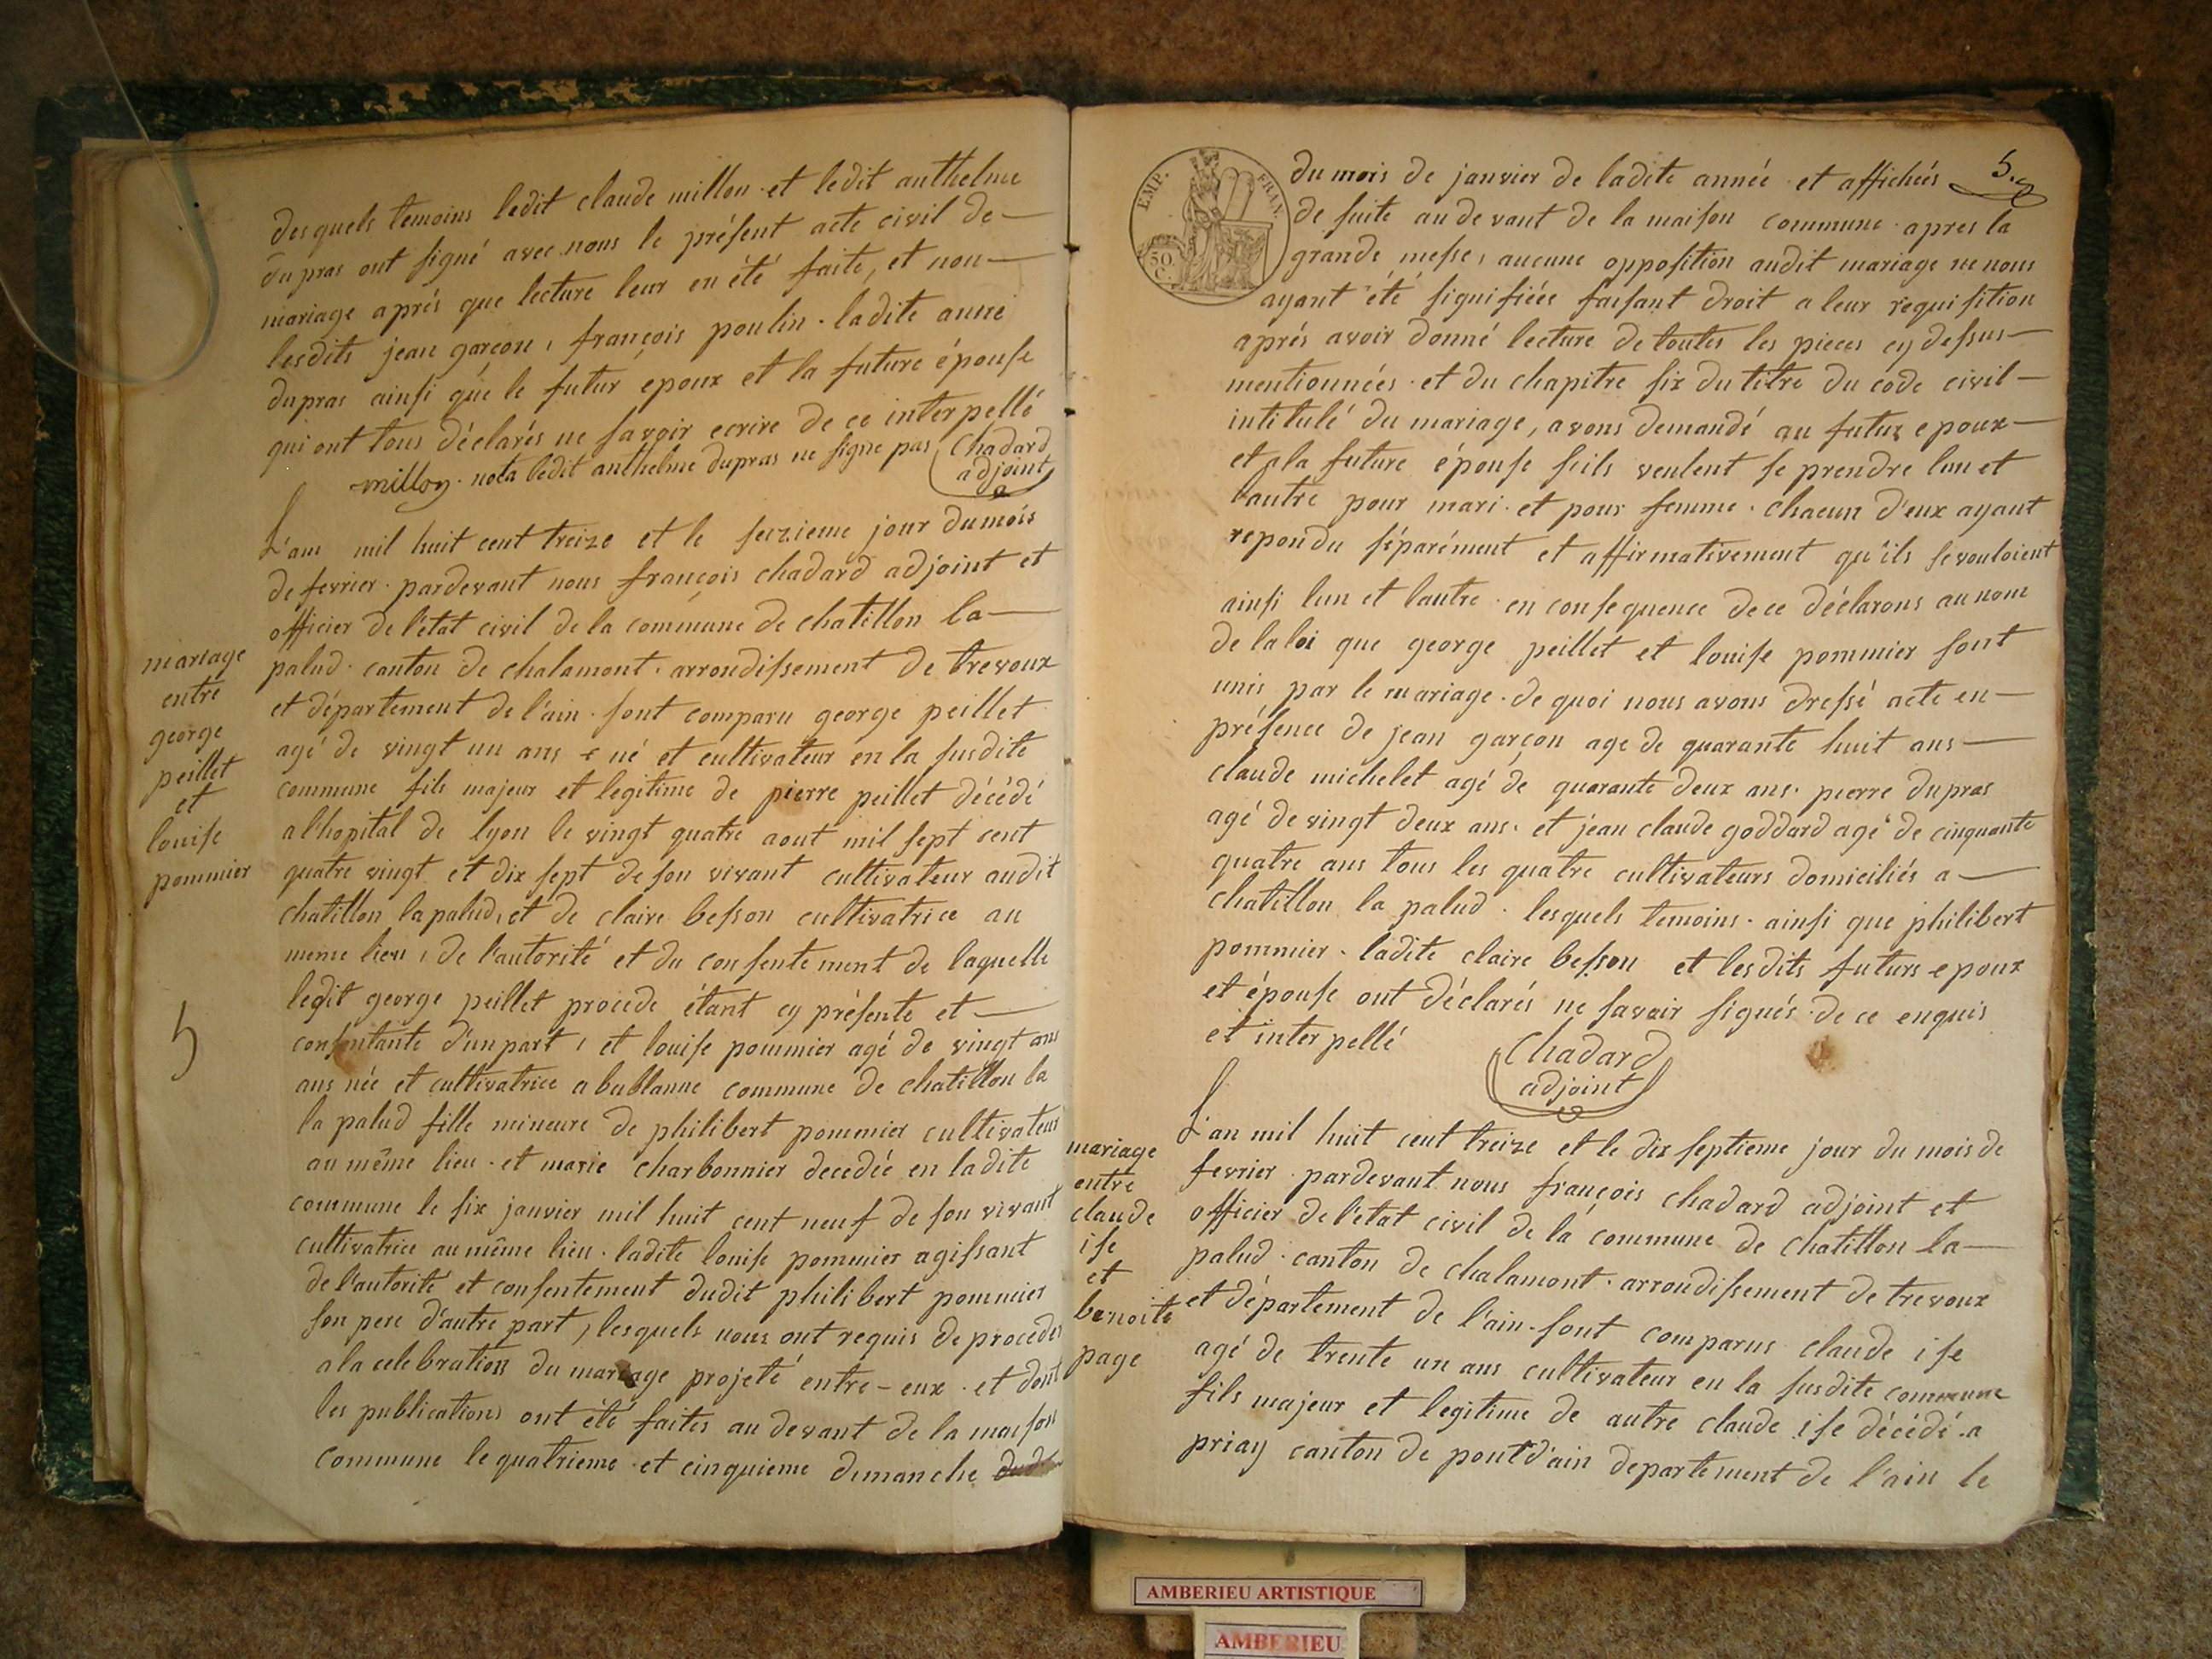 desquels temoins ledit claude millon et ledit anthelme
dupras ont signé avec nous le présent acte civil de
mariage aprés que lecture leur en été faite, et non
lesdits jean garcon, françois poulin. ladite anne
dupras ainsi que le futur époux et la future épouse
qui ont tous déclarés ne savoir ecrire de ce interpellé
millon. nota ledit anthelme dupras ne signe pas Chadard
adjoint
L'an mil huit cent treize et le seizieme jour du mois
de fevrier. pardevant nous françois chadard adjoint et
officier de l'état civil de la commune de chatillon la
palud. canton de chalamont. arrondissement de trevoux
et département de l'ain. sont comparu george peillet
agé de vingt un ans né et cultivateur en la susdite
commune fils majeur et legitime de pierre peillet décédé
a lhopital de lyon le vingt quatre aout mil sept cent
quatre vingt et dix sept de son vivant cultivateur audit
chatillon la palud, et de claire besson cultivatrice au
meme lieu, de l'autorité et du consentement de laquelle
ledit george peillet procede étant cy présente et
consentante d'un part, et louise pommier agé de vingt ans
ans née et cultivatrice a bublanne commune de chatillon la
la palud fille mineure de philibert pommier cultivateur
au même lieu. et marie charbonnier decedée en ladite
commune le six janvier mil huit cent neuf de son vivant
cultivatrice au même lieu. ladite louise pommier agissant
de l'autorité et consentement dudit philibert pommier
son pere d'autre part, lesquels nous ont requis de proceder
a la celebration du mariage projeté entre-eux. et dont
les publications ont été faites au devant de la maison
commune le quatrieme et cinquieme dimanche
mariage
entre
george
peillet
et
louise
pommier
5
EMP. FRAN.
50
C.
5.
du mois de janvier de ladite année et affichés
de suite au devant de la maison commune apres la
grande messe, aucune opposition audit mariage ne nous
ayant été signifiée faisant droit a leur requisition
aprés avoir donné lecture de toutes les pieces cy dessus
mentionnées. et du chapitre six du titre du code civil
intitulé du mariage, avons demandé au futur epoux
et a la future épouse sils veulent se prendre lun et
lautre pour mari. et pour femme. chacun d'eux ayant
repondu séparément et affirmativement qu'ils se vouloient
ainsi lun et lautre. en consequence de ce déclarons au nom
de la loi que george peillet et louise pommier sont
unis par le mariage. de quoi nous avons dressé acte en
présence de jean garçon age de quarante huit ans
claude michelet agé de quarante deux ans. pierre dupras
agé de vingt deux ans. et jean claude goddard agé de cinquante
quatre ans tous les quatre cultivateurs domiciliés a
chatillon la palud. lesquels temoins. ainsi que philibert
pommier. ladite claire besson et lesdits futurs epoux
et épouse ont déclarés ne savoir signés. de ce enquis
et interpellé Chadard
adjoint
L'an mil huit cent treize et le dix septieme jour du mois de
fevrier. pardevant nous françois chadard adjoint et
officier de l'état civil de la commune de chatillon la
palud. canton de chalamont. arrondissement de trevoux
et département de l'ain. sont comparus claude ise
agé de trente un ans cultivateur en la susdite commune
fils majeur et legitime de autre claude ise décédé a
priay canton de pont d'ain departement de l'ain le
mariage
entre
claude
ise
et
benoite
page
AMBERIEU ARTISTIQUE
AMBERIEU